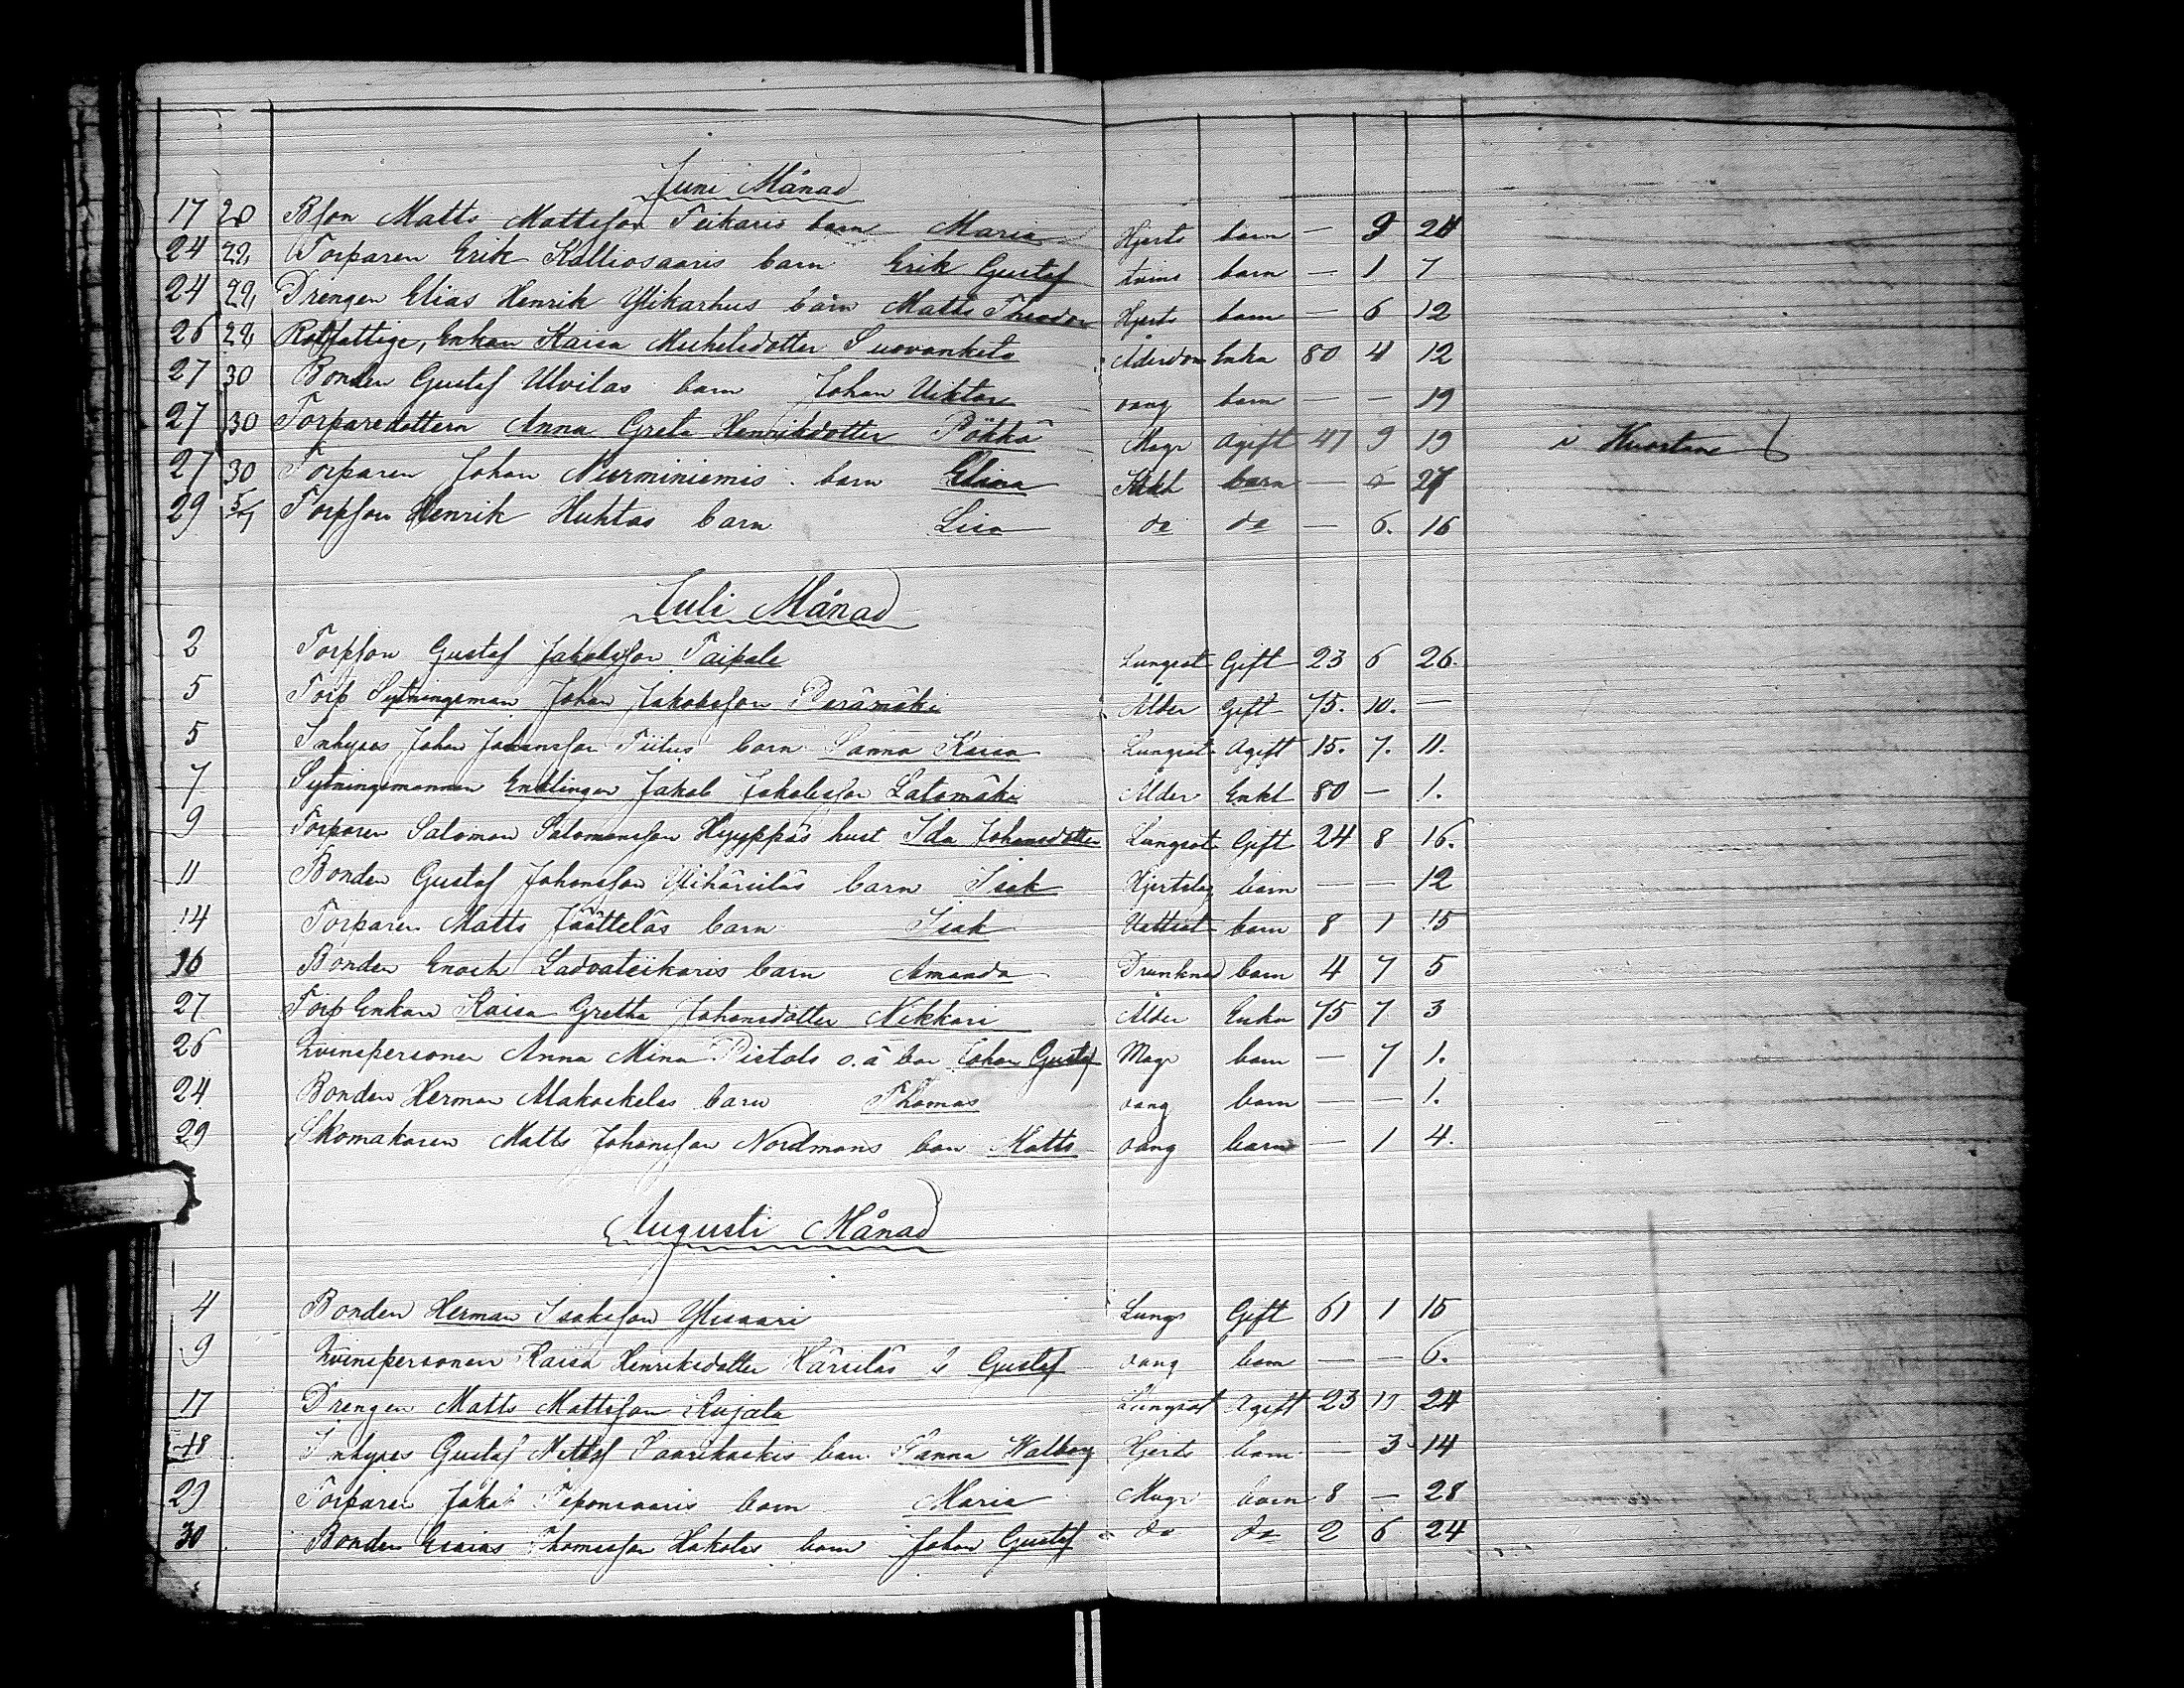 Juni Månad
17 20 Bson Matts Mattsson Teikaris barn Maria Hjerts barn — 9 24
24 22 Torparen Erik Kalliosaaris barn Erik Gustaf barn — 1 7
24 22 Drengen Elias Henrik Ylikarhus barn Matts Theodor Hjerts barn — 6 12
26 22 Rotfattige, Enkan Kaisa Michelsdotter Suovankela Ålderdom Enka 80 4 12
27 30 Bonden Gustaf Ulvilas barn Johan Viktor oang barn — — 19
27 30 Torparedottern Anna Greta Henriksdotter Pökkä Magr Ogift 47 9 19 i Kuortane
27 30 Torparen Johan Nurminiemis barn Elina barn — 27
29 5/7 Torpson Henrik Huhtas barn Lisa do do — 6. 16
Juli Månad
2 Torpson Gustaf Jakobsson Taipale Lungsot Gift 23 6 26.
5 Torp Sytningsman Johan Jakobsson Perämäki Ålder Gift 75. 10. —
5 Inhyses Johan Johansson Tiitus barn Sanna Kaisa Lungsot Ogift 15. 7. 11.
7 Sytningsmannen Enklingen Jakob Jakobsson Latomäki Ålder Enkl 80 — 1.
9 Torparen Salomon Salomonsson Hyyppäs hust Ida Johansdotter Lungsot Gift 24 8 16.
11 Bonden Gustaf Johansson Ylihärsiläs barn Isak Hjertslag barn — — 12
14 Torparen Matts Jäätteläs barn Isak Vattsot barn 8 1 15
16 Bonden Enoch Ladvateikaris barn Amanda Drunknad barn 4 7 5
27 Torp Enkan Kaisa Gretha Johansdotter Nikkari Ålder Enka 75 7 3
26 Qvinspersonen Anna Mina Pistols o.ä bar Johan Gustaf Magr barn — 7 1.
24 Bonden Herman Alakoskelas barn Thomas oang barn — — 1.
29 Skomakaren Matts Johansson Nordmans barn Matts oang barn — 1 4.
Augusti Månad
4 Bonden Herman Isaksson Ylisaari Lungs Gift 61 1 15
9 Qvinspersonen Kaisa Henriksdotter Härsiläs b Gustaf oang barn — — 6.
17 Drengen Matts Mattsson Rujala Lungsot Ogift 23 24
18 Inhyses Gustaf Saarikoskis barn Sanna Walborg Hjerts barn — 3 14
29 Torparen Jakob Teponsaaris barn Maria Magr barn 8 — 28
30 Bonden Esaias Thomasson Hakolas barn Johan Gustaf do do 2 6 24